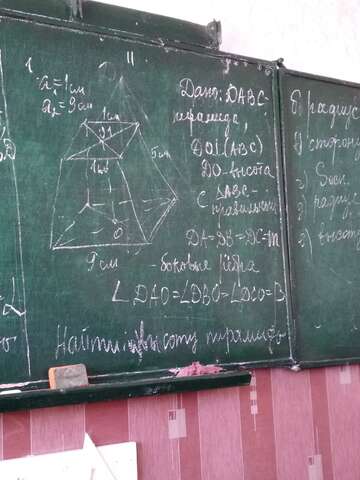 1
a₁=1см
a₂=9см
II
D
1см
5см
O
9см
Дано: DABC-
пирамида,
DO⊥(ABC)
DO-высота
с ΔABC-
правильный
DA=DB=DC=m
-боковые рёбра
∠DAO=∠DBO=∠DCO=β
Найти: высоту пирамиды
б) радиус
в) сторону
г) Sосн.
д) радиус
е) высота